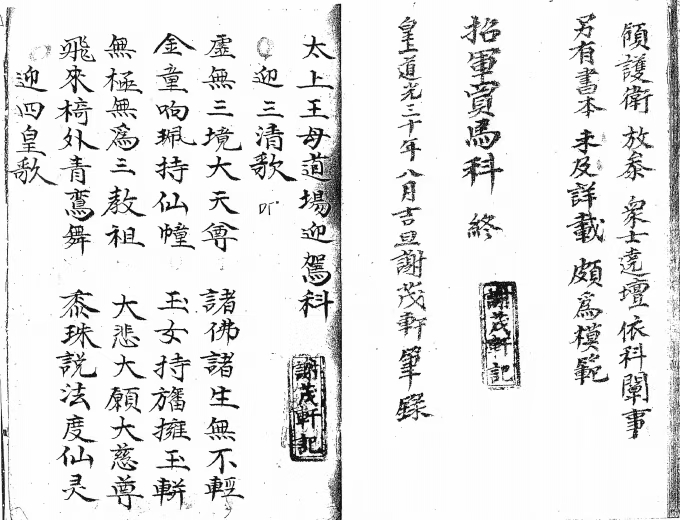 頎護衛 放叅 衆士遶壇依科闡事
另有書本 未及詳載 頗爲模範
招軍買馬科 終
謝茂軒記
皇道光三十年八月吉旦謝茂軒筆錄
太上王母道場迎駕科
謝茂軒記
迎三清歌
虛無三境大天尊 諸佛諸生無不輕
金童响珮持仙幢 玉女持旛擁玉輧
無極無爲三教祖 大悲大願大慈尊
飛來椅外青鸞舞 黍珠説法度仙灵
迎四皇歌